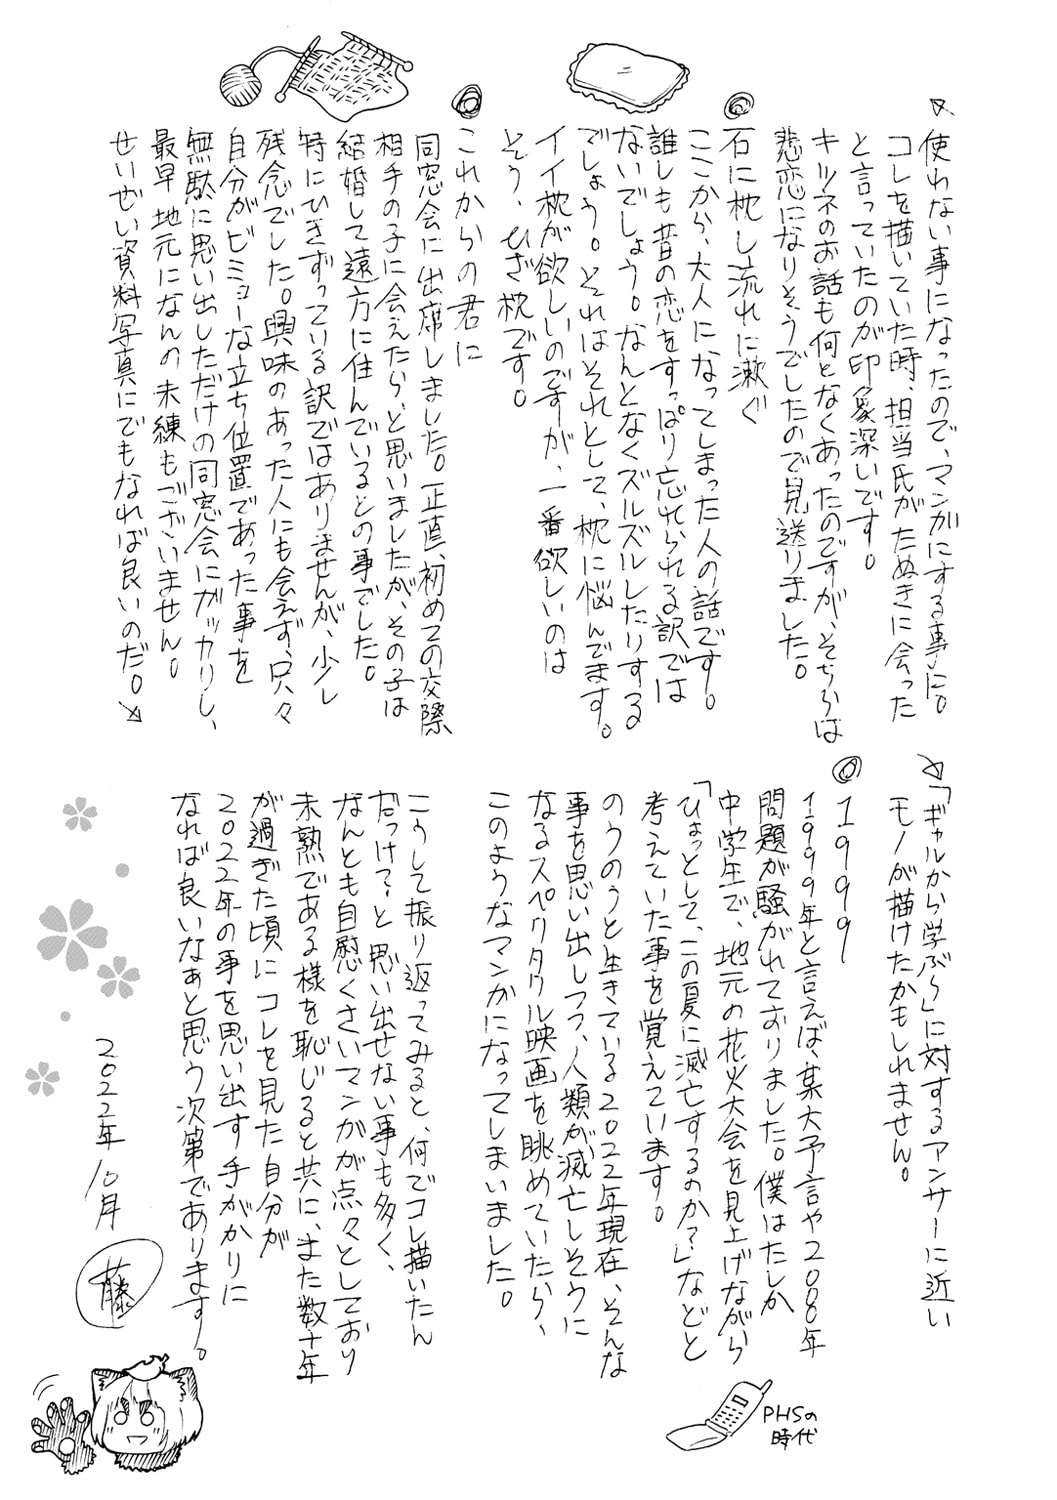 使わない事になったので、マンガにする事に。
コレを描いていた時、担当氏がたぬきに会った
と言っていたのが印象深いです。
キツネのお話も何となくあったのですが、そちらは
悲恋になりそうでしたので見送りました。
石に枕し流れに漱ぐ
ここから、大人になってしまった人の話です。
誰しも昔の恋をすっぱり忘れられる訳では
ないでしょう。なんとなくズルズルしたりする
でしょう。それはそれとして、枕に悩んでます。
イイ枕が欲しいのですが、一番欲しいのは
そう、ひざ枕です。
これからの君に
同窓会に出席しました。正直、初めての交際
相手の子に会えたら、と思いましたが、その子は
結婚して遠方に住んでいるとの事でした。
特にひきずっている訳ではありませんが、少し
残念でした。興味のあった人にも会えず、只々
自分がビミョーな立ち位置であった事を
無駄に思い出しただけの同窓会にガッカリし、
最早地元になんの未練もございません。
せいぜい資料写真にでもなれば良いのだ。
「ギャルから学ぶ〜」に対するアンサーに近い
モノが描けたかもしれません。
1999
1999年と言えば、某大予言や2000年
問題が騒がれておりました。僕はたしか
中学生で、地元の花火大会を見上げながら
「ひょっとして、この夏に滅亡するのか?」などと
考えていた事を覚えています。
のうのうと生きている2022年現在、そんな
事を思い出しつつ、人類が滅亡しそうに
なるスペクタクル映画を眺めていたら、
このようなマンガになってしまいました。
こうして振り返ってみると、何でコレ描いたん
だっけ?と思い出せない事も多く、
なんとも自慰くさいマンガが点々としており
未熟である様を恥じると共に、また数十年
が過ぎた頃にコレを見た自分が
2022年の事を思い出す手がかりに
なれば良いなぁと思う次第であります。
2022年10月
藤
PHSの
時代